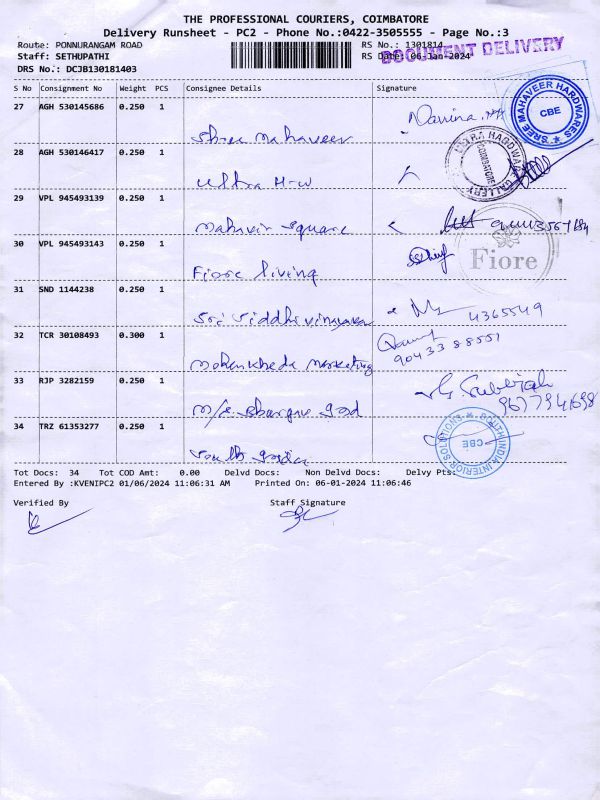 THE PROFESSIONAL COURIERS, COIMBATORE
Delivery Runsheet - PC2 - Phone No.:0422-3505555 - Page No.:3
Route: PONNURANGAM ROAD
RS No.: 1301814
DOCUMENT DELIVERY
Staff: SETHUPATHI
RS Date: 06-Jan-2024
DRS No.: DCJB130181403
S No Consignment No Weight PCS Consignee Details Signature
27 AGH 530145686 0.250 1
Shree Mahaveer
SREE MAHAVEER HARDWARES CBE
28 AGH 530146417 0.250 1
Ultra H-W
ULTRA HARDWARE GALLERY COIMBATORE
29 VPL 945493139 0.250 1
Mahavir Square
30 VPL 945493143 0.250 1
Fiore living
Fiore
31 SND 1144238 0.250 1
Sri Siddhi vinayaka
4365549
32 TCR 30108493 0.300 1
Mohankheda Marketing
90433 88551
33 RJP 3282159 0.250 1
M/s. Bhargav God
34 TRZ 61353277 0.250 1
South India
SOUTH INDIA INTERIOR SOLUTIONS CBE
Tot Docs: 34 Tot COD Amt: 0.00 Delvd Docs: Non Delvd Docs: Delvy Pts:
Entered By :KVENIPC2 01/06/2024 11:06:31 AM Printed On: 06-01-2024 11:06:46
Verified By Staff Signature